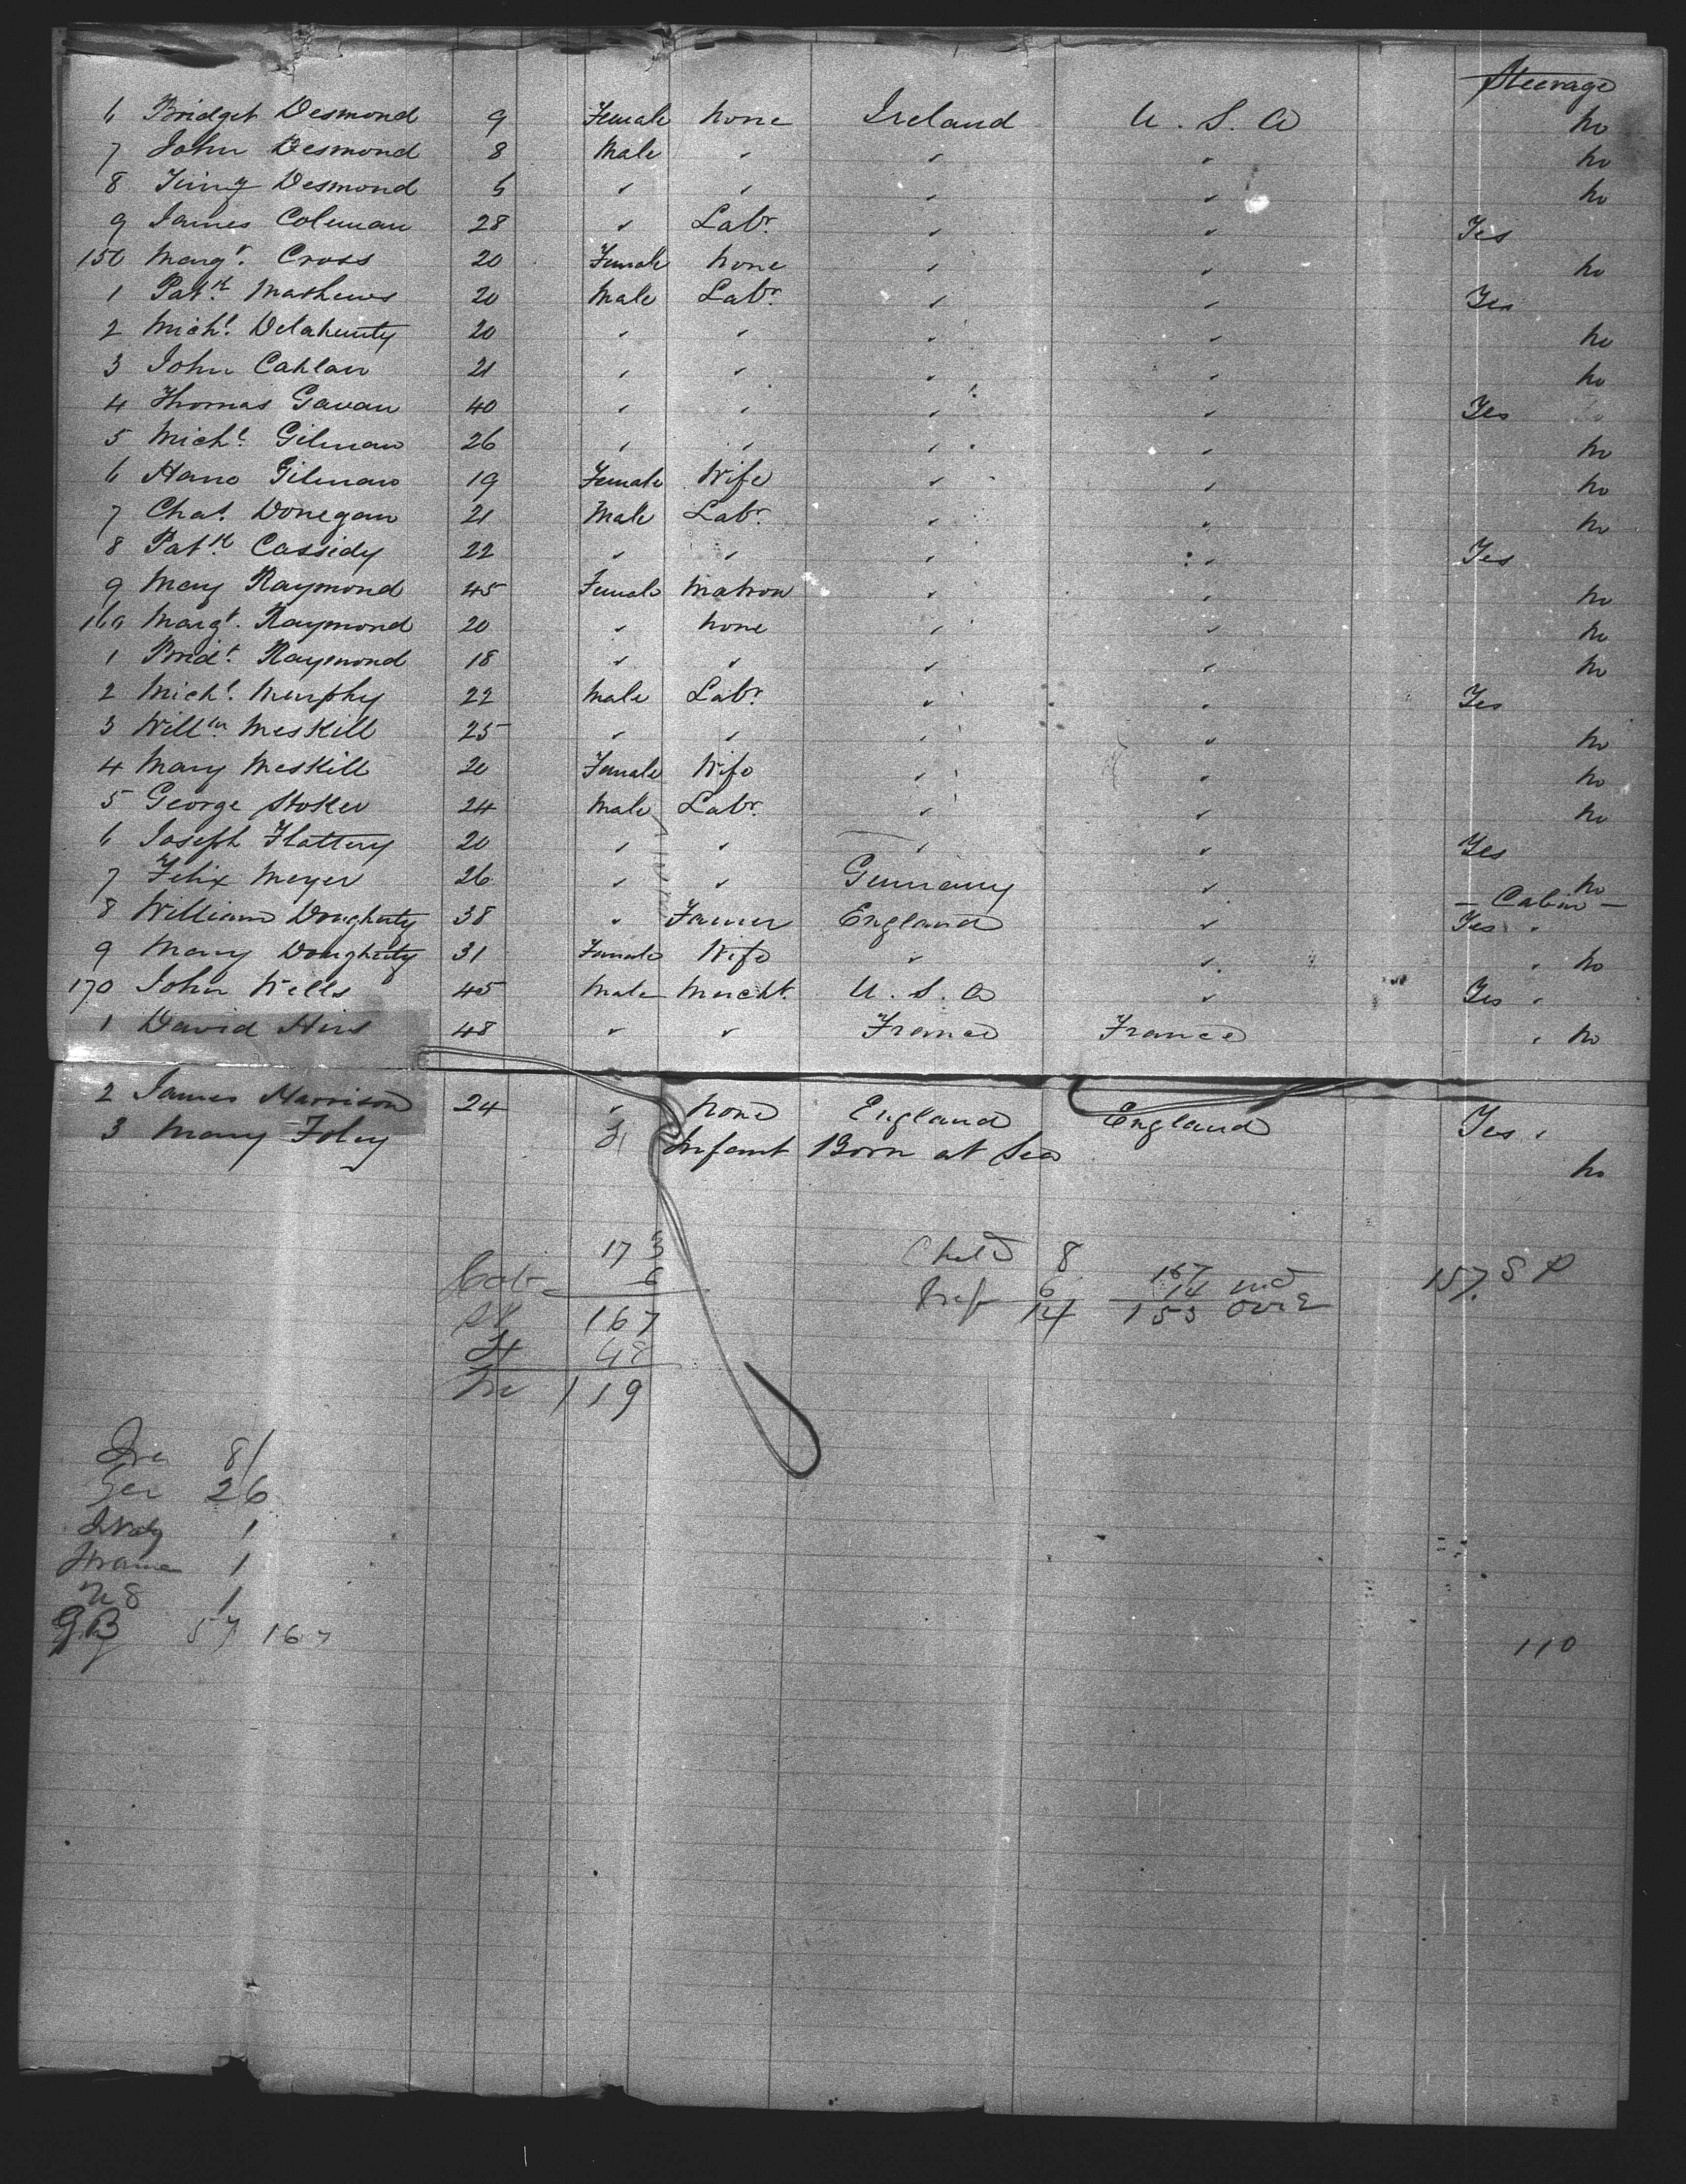 Steerage
6 Bridget Desmond 9 Female None Ireland U. S. A no
7 John Desmond 8 Male " " " no
8 Desmond 6 " " " " no
9 James Coleman 28 " Labr. " " Yes
150 Margt. Cross 20 Female None " " no
1 Patk. Mathews 20 Male Labr. " " Yes
2 Michl. Delahunty 20 " " " " no
3 John Cahlan 21 " " " " no
4 Thomas Gavan 40 " " " " Yes
5 Michl. Gilman 26 " " " " no
6 Hano Gilman 19 Female Wife " " no
7 Chas. Donegan 21 Male Labr. " " no
8 Patk. Cassidy 22 " " " " Yes
9 Mary Raymond 45 Female Matron " " no
160 Margt. Raymond 20 " None " " no
1 Bridt. Raymond 18 " " " " no
2 Michl. Murphy 22 Male Labr. " " Yes
3 Willm. Meskill 25 " " " " no
4 Mary Meskill 20 Female Wife " " no
5 George Stoker 24 Male Labr. " " no
6 Joseph Flattery 20 " " " " Yes
7 Felix Meyer 26 " " Germany " no
— Cabin —
8 William Dougherty 38 " Farmer England " Yes "
9 Mary Dougherty 31 Female Wife " " " no
170 John Wells 45 Male Mercht. U. S. A " Yes "
1 David Hirs 48 " " France France " no
2 James Harrison 24 " None England England Yes "
3 Mary Foley Infant Born at Sea no
173 Child 8 167 157. S P
Cab 6 Inf 6 14 und
St 167 14 153 over
48
119
Ire 81
Ger 26
Italy 1
France 1
U S 1
G B 57 167 110